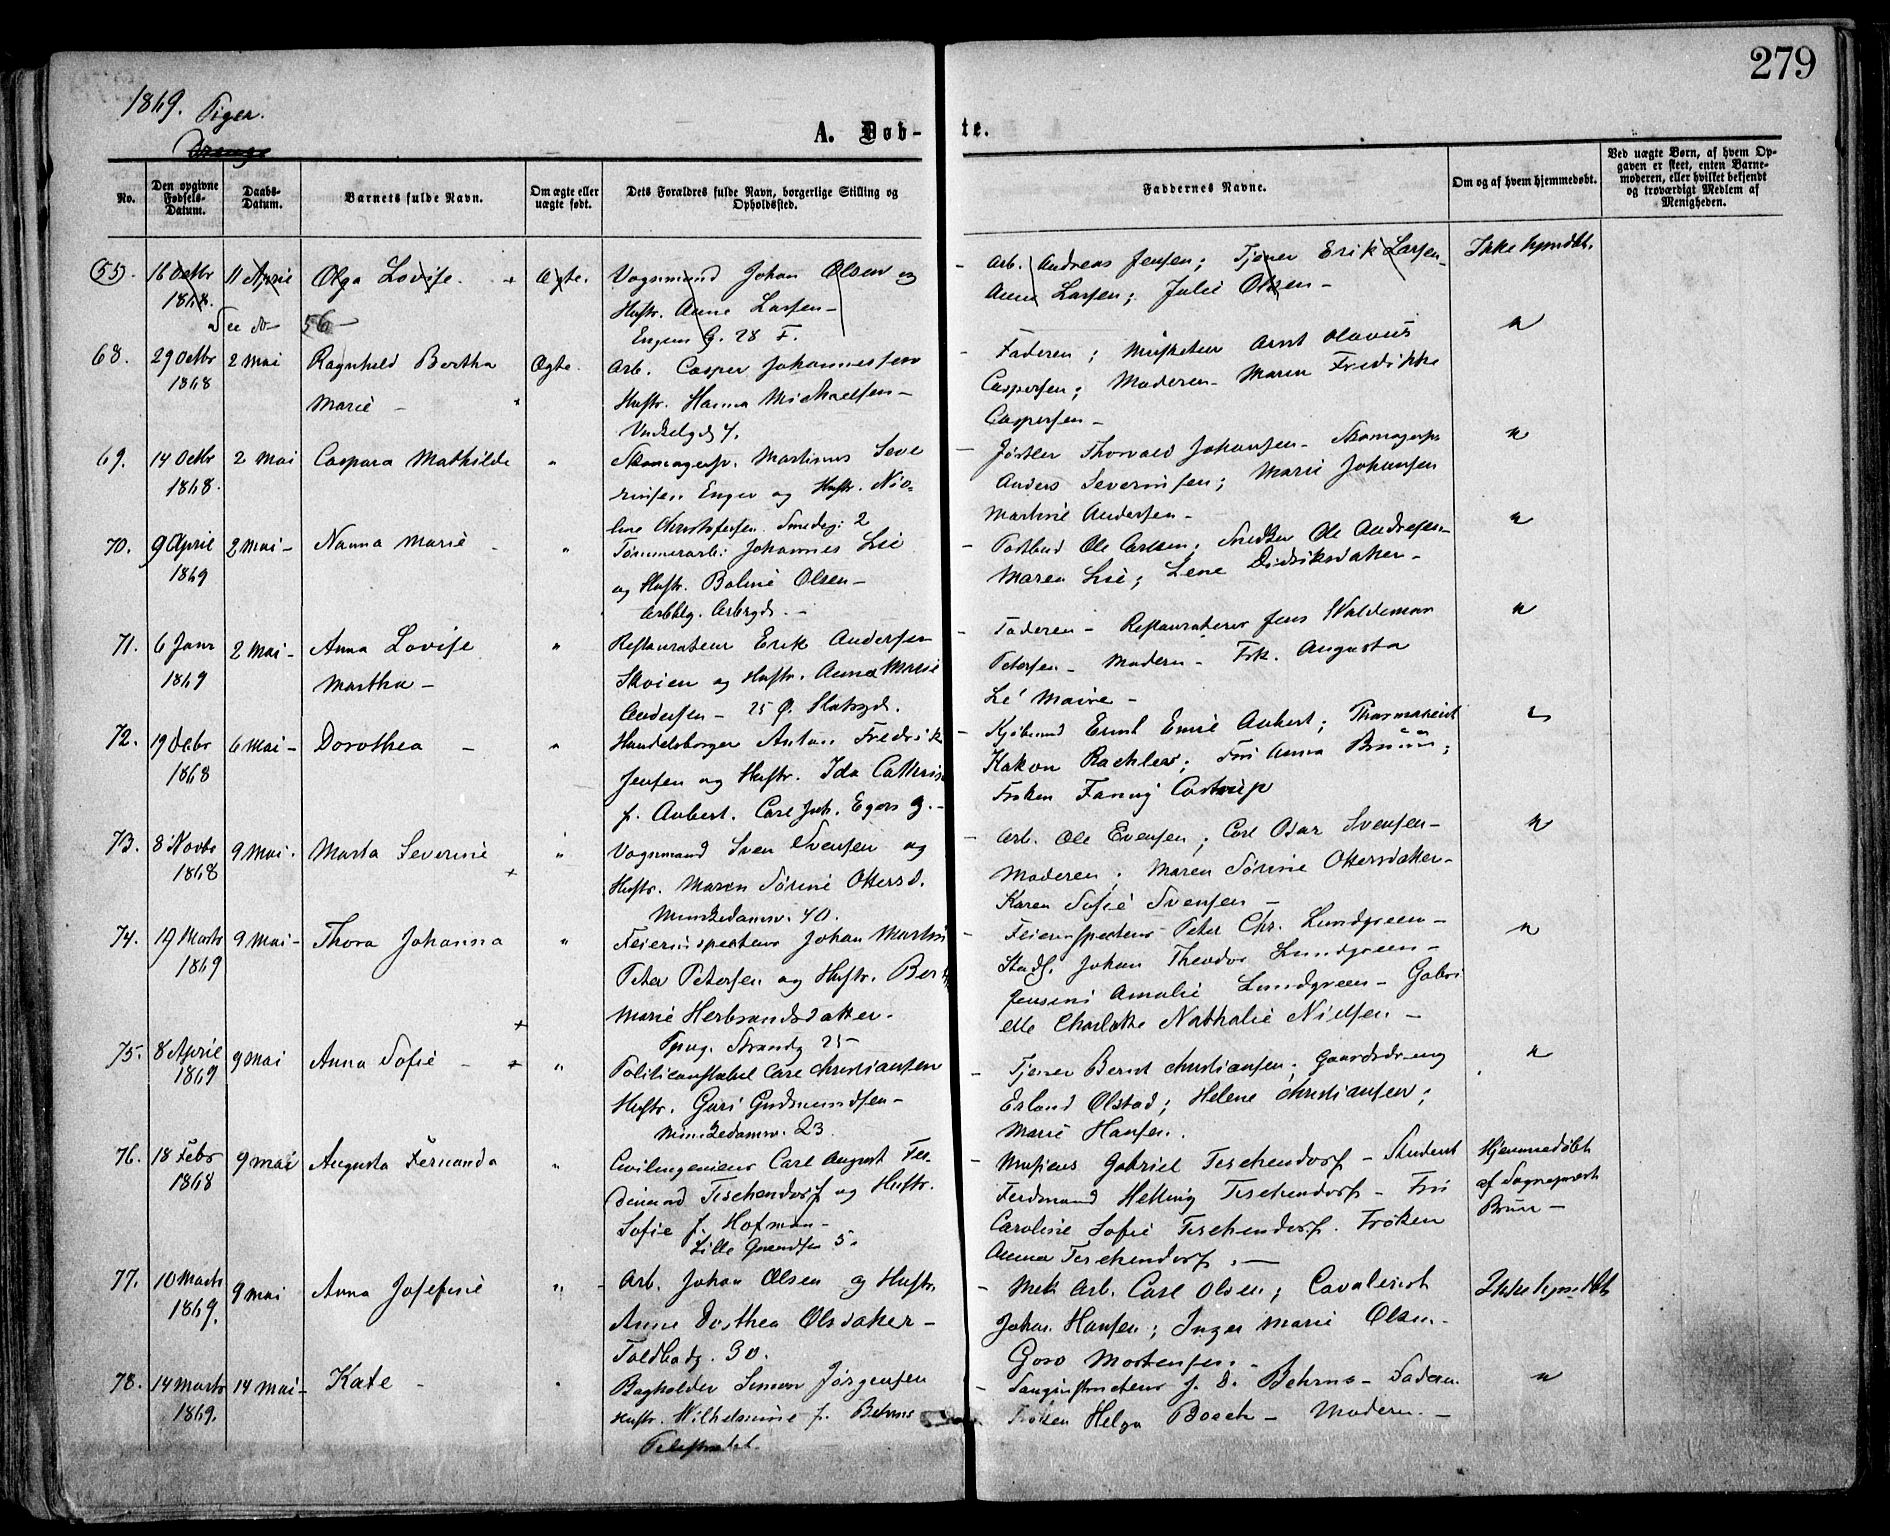 279
1869. Piger.
Drenge
A. Døb- te.
No.
Den opgivne Fødsels-Datum.
Daabs-Datum.
Barnets fulde Navn.
Om ægte eller uægte født.
Dets Forældres fulde Navn, borgerlige Stilling og Opholdssted.
Faddernes Navne.
Om og af hvem hjemmedøbt.
Ved uægte Børn, af hvem Opgaven er skeet, enten Barnemoderen, eller hvilket bekjendt og troværdigt Medlem af Menigheden.
55. 16 Octbr 11 April Olga Lovise. Ægte. Vognmand Johan Olsen og
1868. Hustr. Anne Larsen –
See No 56 Engens G. 28 F.
Arb. Andreas Jensen; Tjener Erik Larsen
Anne Larsen; Julie Olsen –
Ikke hjmdbt.
68. 29 Octbr 2 Mai Ragnhild Bertha Ægte. Arb. Casper Johannessen
1868 Marie – Hustr. Hanna Michaelsen –
4.
Faderen; Musketeer Arnt Olavus
Caspersen; Moderen – Maren Fredikke
Caspersen –
"
69. 14 Octbr 2 Mai Caspara Mathilde " Skomagersv. Martinus Seve
1868. rinsen Enger og Hustr. Nico-
line Christofersen Smedg: 2
Thorvald Johansen – Skomagersv
Anders Severinsen; Marie Johansen
Martine Andersen –
"
70. 9 April 2 Mai – Nanna Marie – " Tømmerarb. Johannes Lie
1869 og Hustr. Boline Olsen –
Arbblg. Arbgd. –
Postbud Ole Carlsen; Snedker Ole Andresen –
Maren Lie; Lene Didriksdatter –
"
71. 6 Janr 2 Mai – Anna Lovise " Restaurateur Erik Andersen
1869 Martha – Skoien og Hustr. Anna Marie
Andersen – 25 Ø. Slotsgd.
Faderen – Restauratør Jens Waldemar
Petersen – Modern – Frk. Augusta
Lé Maire –
"
72. 19 Octbr 6 Mai – Dorothea – " Handelsborger Anton Fredrik
1868 Jensen og Hustr. Ida Cathrine
f. Aubert. Carl Joh. Egers g. –
Kjøbmand Ernst Emil Aubert; Pharmaceut
Hakon Rachlew; Fru Anna Bruun;
Frøken Fanny Castrup
"
73. 8 Novbr 9 Mai. Marta Severine " Vognmand Sven Svensen og
1868 Hustr. Maren Sørine Ottersd.
Munkedamsv. 40.
Arb. Ole Evensen; Carl Osar Svensen –
Moderen; Maren Sørine Ottersdatter –
Karen Sofie Svensen –
"
74. 19 Marts 9 Mai – Thora Johanna " Feierinspecteur Johan Martin
1869 Peter Petersen og Hustr. Berthe
Marie Herbrandsdatter.
Strandg 25 –
Feierinspecteur Peter Chr. Lundgreen –
Stads. Johan Theodor Lundgreen –
Jensine Amalie Lundgreen – Gabri
elle Charlotte Nathalie Nielsen –
"
75. 8 April 9 Mai Anna Sofie – " Politiconstabel Carl Christiansen
1869 Hustr. Guri Gudmundsen –
Munkedamsv. 23.
Tjener Bernt Christiansen; Gaardsdreng
Erland Olstad; Helene Christiansen;
Marie Hansen.
"
76. 18 Febr 9 Mai Augusta Fernanda " Civilingeniør Carl August Fer-
1868 dinand Tischendorf og Hustr.
Sofie f. Hofman –
Lille Grændsen 5.
Musicus Gabriel Tischendorf – Student
Ferdinand Helting Tischendorf – Fru
Caroline Sofie Tischendorf. Frøken
Anna Tischendorf. –
Hjemmedøbt
af Sognepræst
Bruun –
77. 10 Marts 9 Mai Anna Josefine " Arb. Johan Olsen og Hustr.
1869. Anne Dorthea Olsdatter –
Toldbodg. 30.
Mek. Arb. Carl Olsen; Cavalerist
Johan Hansen; Inger Marie Olsen –
Goro Mortensen. –
Ikke hjmdbt
78. 14 Marts 14 Mai – Kate – " Bogholder Simon Jørgensen
1869. Hustr. Wilhelmine f. Behrns
Pilestrædet.
Sanginstructeur J. D. Behrns – Faderen
Frøken Helga Bosch – Modern. –
"